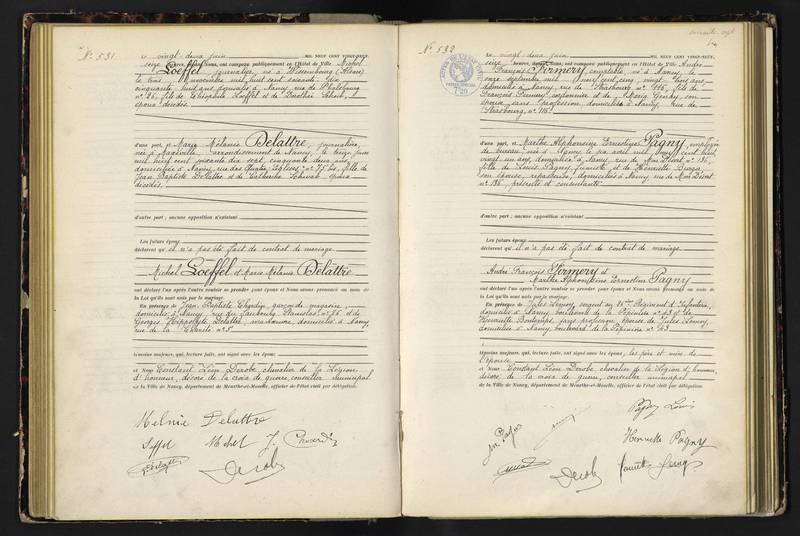 N° 531
Le vingt deux juin MIL NEUF CENT VINGT-NEUF,
seize heures, Nous, ont comparu publiquement en l'Hôtel de Ville Michel
Loeffel, journalier, né à Wissembourg (Alsace)
le trois novembre mil huit cent soixante dix
cinquante huit ans, domicilié à Nancy, rue de Phalsbourg
n° 26, fils de Théophile Loeffel et de Dorothée
époux décédés
d'une part, et Marie Mélanie Delattre, journalière,
née à Maxéville arrondissement de Nancy, le treize juin
mil huit cent soixante dix sept, cinquante deux ans,
domiciliée à Nancy, rue des Quatre Églises n° 75 bis, fille de
Jean Baptiste Delattre et de Catherine Schwab époux
décédés
d'autre part; aucune opposition n'existant
Les futurs époux
déclarent qu'il n'a pas été fait de contrat de mariage.
Michel Loeffel et Marie Mélanie Delattre
ont déclaré l'un après l'autre vouloir se prendre pour époux et Nous avons prononcé au nom de
la Loi qu'ils sont unis par le mariage.
En présence de Jean Baptiste garçon de magasin,
domicilié à Nancy, rue du Faubourg Stanislas n° 26 et de
Georges Hippolyte Delattre, domicilié à Nancy,
rue de la Charité n° 5
témoins majeurs, qui, lecture faite, ont signé avec les époux
et Nous Constant Léon Derobe, chevalier de la Légion
d'honneur, décoré de la croix de guerre, conseiller municipal
de la Ville de Nancy, département de Meurthe-et-Moselle, officier de l'état civil par délégation.
Melnie Delattre
Loffel Michel J.
Derobe
N° 532
Le vingt deux juin MIL NEUF CENT VINGT-NEUF,
seize heures, Nous, ont comparu publiquement en l'Hôtel de Ville André
François Firmery, comptable, né à Nancy, le
onze septembre mil neuf cent cinq, vingt trois ans
domicilié à Nancy, rue de Strasbourg n° 116, fils de
François Firmery, cordonnier et de Maria Gendy, son
épouse, sans profession, domiciliés à Nancy, rue de
Strasbourg, n° 116
d'une part, et Marthe Alphonsine Ernestine Pagny, employée
de bureau, née à Nancy, le six avril mil neuf cent huit,
vingt un ans, domiciliée à Nancy, rue de Mon Désert n° 136,
fille de Louis Pagny, et de Henriette
son épouse, repasseuse, domiciliés à Nancy, rue de Mon Désert
n° 136, présents et consentants
d'autre part; aucune opposition n'existant
Les futurs époux
déclarent qu'il n'a pas été fait de contrat de mariage.
André François Firmery et
Marthe Alphonsine Ernestine Pagny
ont déclaré l'un après l'autre vouloir se prendre pour époux et Nous avons prononcé au nom de
la Loi qu'ils sont unis par le mariage.
En présence de Jules sergent au Régiment d'Infanterie,
domicilié à Nancy, boulevard de la Pépinière n° 43 et de
Henriette sans profession, épouse de Jules
domiciliée à Nancy, boulevard de la Pépinière n° 43
témoins majeurs, qui, lecture faite, ont signé avec les époux, les père et mère de
l'épouse
et Nous Constant Léon Derobe, chevalier de la Légion d'honneur,
décoré de la croix de guerre, conseiller municipal
de la Ville de Nancy, département de Meurthe-et-Moselle, officier de l'état civil par délégation.
Pagny Louis
Henriette Pagny
Derobe